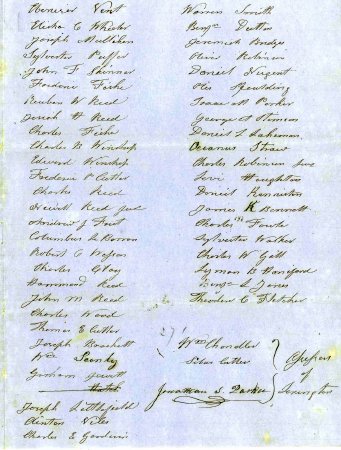 Ebenezer Vent
Elisha C Wheeler
Joseph Mulliken
Sylvester Puffer
John F Skinner
Frederic Fiske
Reuben W Reed
Josiah H Reed
Charles Fiske
Charles B Winship
Edward Winship
Frederic P Cutler
Charles Reed
Hewitt Reed jun
Andrew J
Columbus
Robert C
Charles Gray
Hammond Reed
John M Reed
Charles Wood
Thomas E Cutler
Joseph
Wm
Gorham
Joseph Littlefield
Clinton Viles
Charles E
Warren Smith
Benj Dutton
Jeremiah Bridge
Oliver Robinson
Daniel Nugent
Otis Spaulding
Isaac N Parker
George O
Daniel S
Oceanus Straw
Charles Robinson jun
Levi Houghton
Daniel Kenniston
James K Bennett
Charles Fowle
Sylvester Walker
Charles W Gill
Lyman B Hannaford
Benj L Jones
Theodore C Fletcher
Wm Chandler
Silas Cutler
Jonathan S Parker
Assessors
of
Lexington